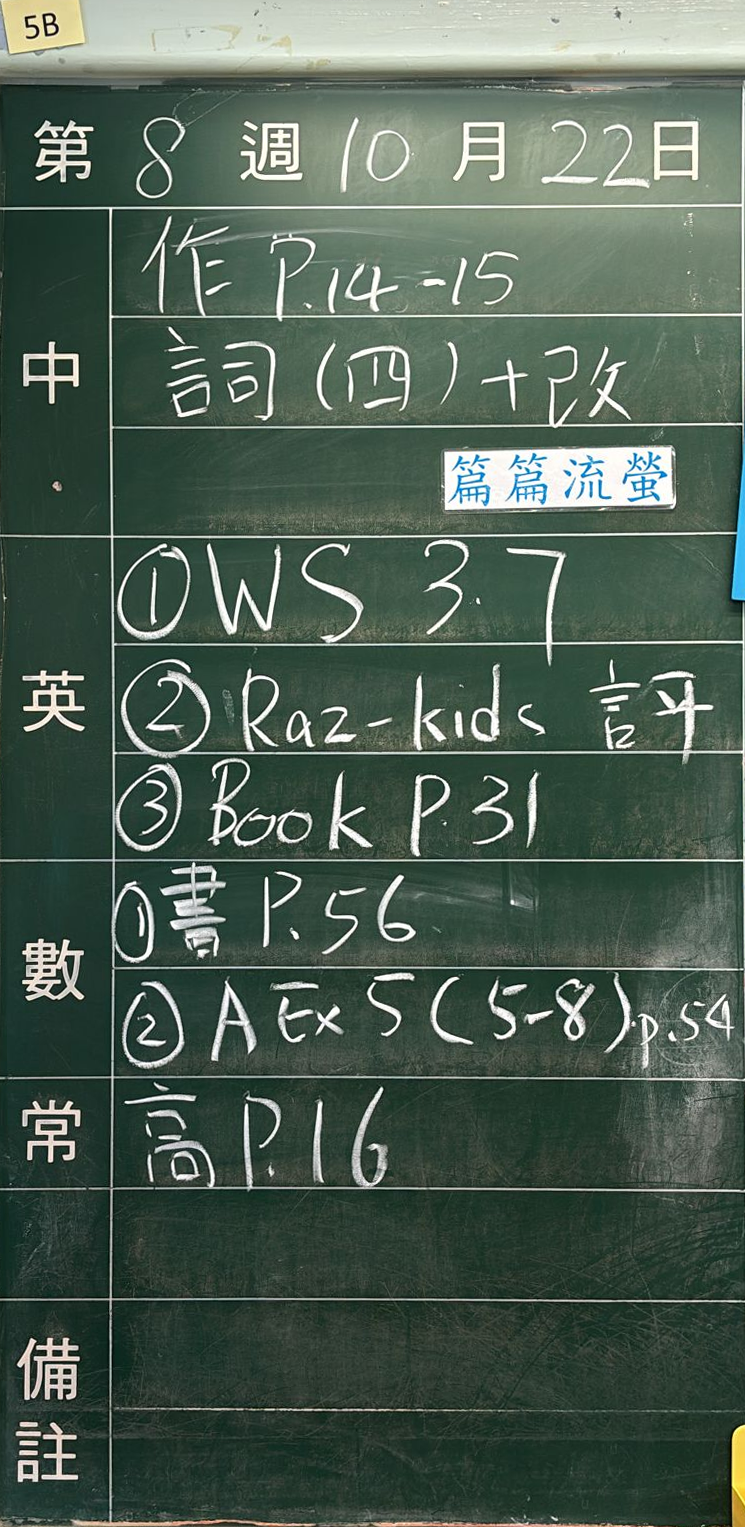 5B
第 8 週 10 月 22 日
中
作 P.14-15
詞(四)+改
篇篇流螢
英
① WS 3.7
② Raz-kids 評
③ Book P.31
數
① 書 P.56
② A Ex 5 (5-8) p.54
常
高 P.16
備註